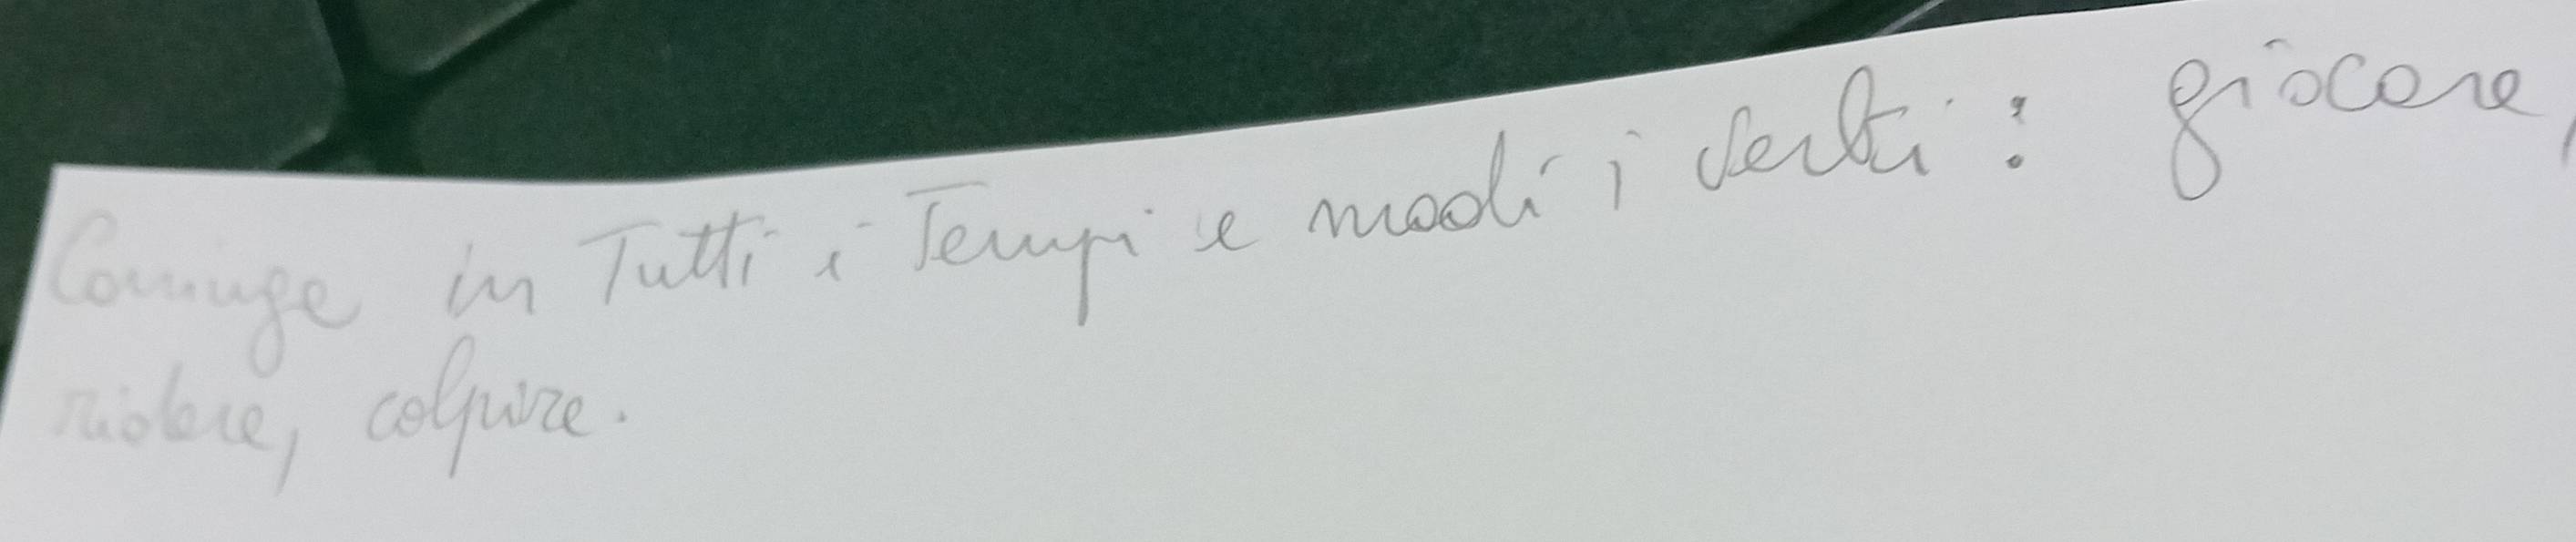 Coniuge in Tutti i Tempi e modi i verbi: giocare,
ridere, colpire.